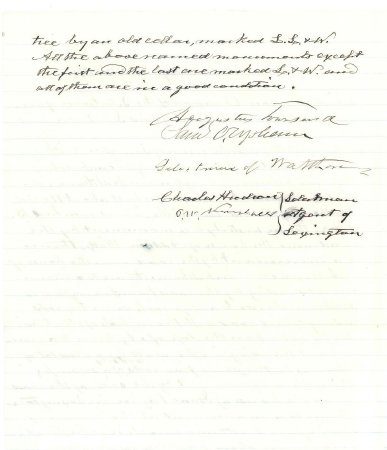 tree by an old cellar, marked L. L. & W.
All the above named monuments except
the first and the last are marked L. & W. and
all of them are in a good condition.
Augustus Townsend
Selectmen of Waltham
Charles Hudson Selectman
Agent of
Lexington